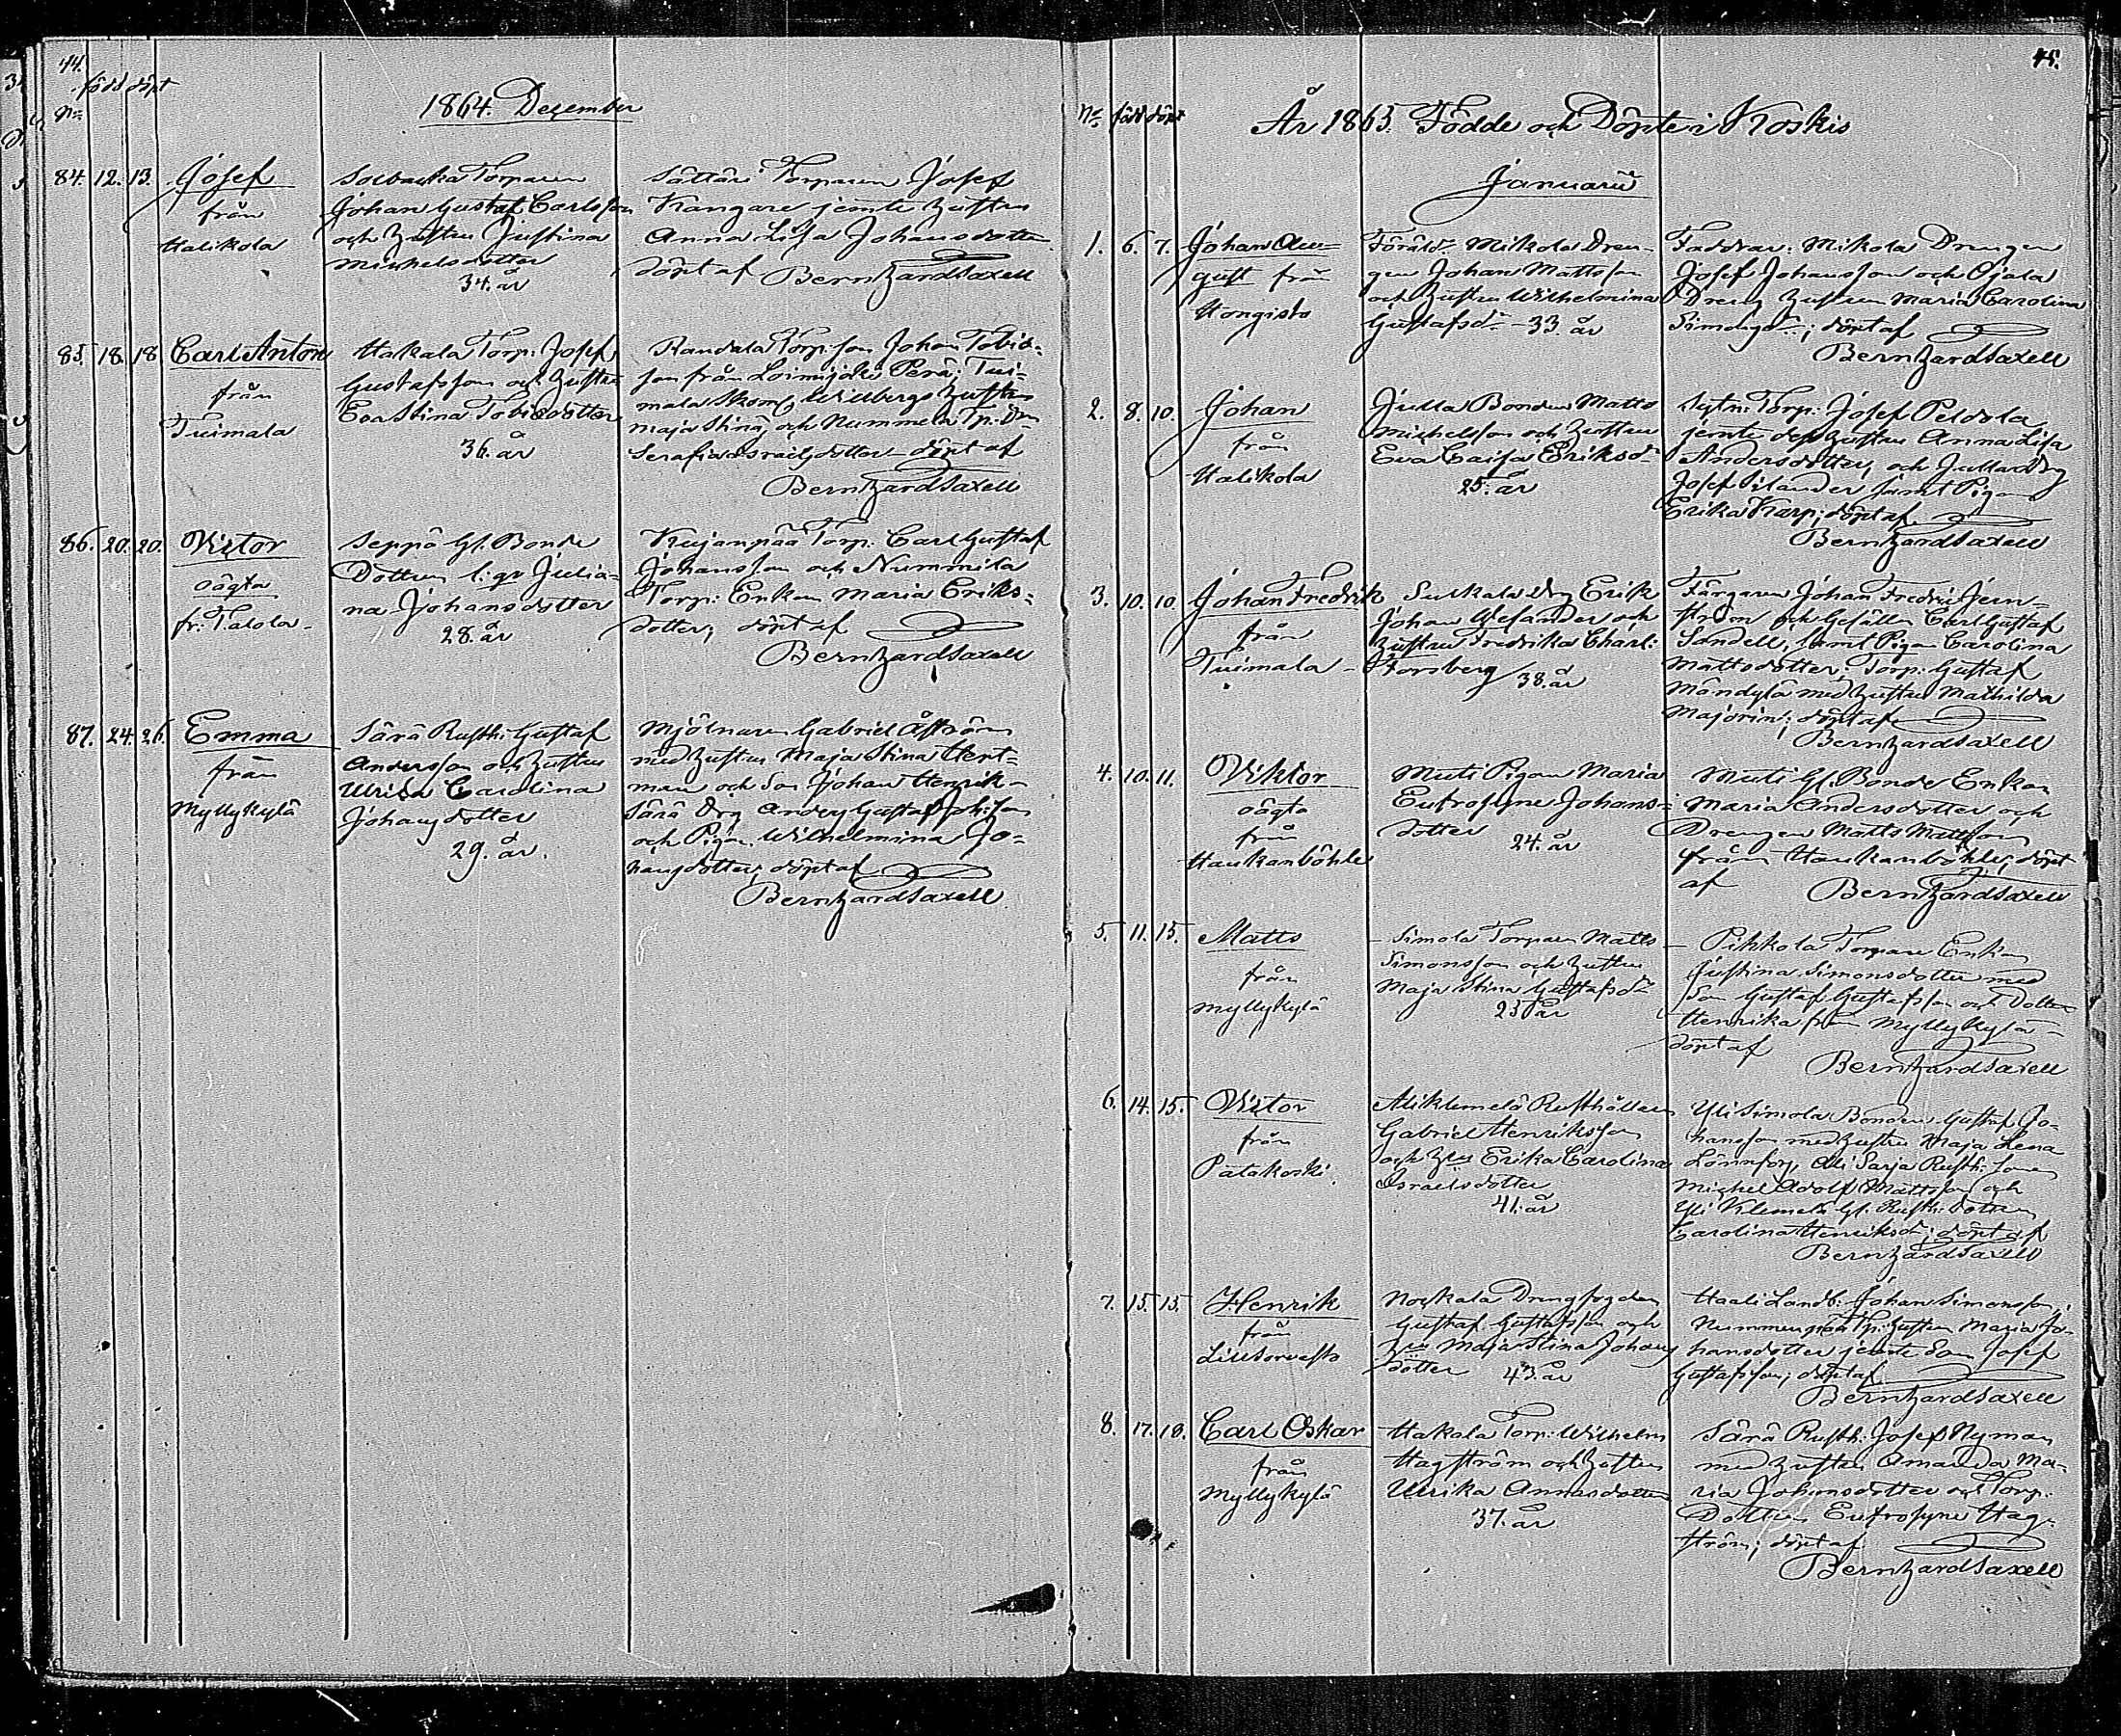 44.
född döpt
No
1864. December
84. 12. 13. Josef
från
Halikola
Torparen
Johan Gustaf Carlsson
och hustru Justina
Michelsdotter
34. år
Sättäri Torparen Josef
Kangare jemte hustru
Anna Lisa Johansdotter
döpt af Bernhard Saxell
85. 18. 18 Carl Anton
från
Tuimala
Hakala Torp: Josef
Gustafsson och hustru
Eva Stina Tobiedotter
36. år
Randala Torp: son Johan Tobia-
son från Loimijoki Perä; Tui-
mala Skom. Willbergs hustru
Maja Stina, och Nummela Tp:
Serafia Israelsdotter döpt af
Bernhard Saxell
86. 20. 20. Victor
oägta
fr: Talola
Seppä Gl. Bonde
Dottren l: qv Julia-
na Johansdotter
28. år
Kujanpää Torp: Carl Gustaf
Johansson och Nummila
Torp: Enkan Maria Eriks-
dotter; döpt af
Bernhard Saxell
87. 24. 26. Emma
från
Myllykylä
Särä Rusth: Gustaf
Andersson och hustru
Ulrika Carolina
Johansdotter
29. år.
Mjölnaren Gabriel Åström
med hustru Maja Stina Hent-
man och Son Johan Henrik
Särä Drg Anders Gustaf Johsson
och Pigan Wilhelmina Jo-
hansdotter; döpt af
Bernhard Saxell
45.
No född döpt
År 1865. Födde och Döpte i Koskis
Januarii
1. 6. 7. Johan Au-
gust från
Hongisto
Föräld: Mikola Dren-
gen Johan Mattsson
och hustru Wilhelmina
Gustafsdr 33 år
Faddrar: Mikola Drengen
Josef Johansson och Ojala
Dreng hustrun Maria Carolina
Simonsdr; döpt af
Bernhard Saxell
2. 8. 10. Johan
från
Halikola
Julla Bonden Matts
Michelsson och hustru
Eva Caisa Eriksdr
25. år
Torp: Josef Peldola
jemte dess hustru Anna Lisa
Andersdotter, och Julla Drg
Josef Silander samt Pigan
Erika Karp; döpt af
Bernhard Saxell
3. 10. 10 Johan Fredrik
från
Tuimala
Suskala Drg Erik
Johan Wesander och
hustru Fredrika Charl:
Forsberg 38. år
Färgaren Johan Fredric Jern-
ström och Gesällen Carl Gustaf
Sandell, samt Pigan Carolina
Mattsdotter; Torp: Gustaf
Mändylä med hustru Mathilda
Majorin; döpt af
Bernhard Saxell
4. 10. 11. Viktor
oägta
från
Haukanböhle
Muti Pigan Maria
Eufrosyne Johans-
dotter 24. år
Muti Gl. Bonde Enkan
Maria Andersdotter och
Drengen Matts Mattsson
från Haukanböhle; döpt
af Bernhard Saxell
5. 11. 15. Matts
från
Myllykylä
Simola Torparen Matts
Simonsson och hustru
Maja Stina Gustafsdr
25 år
Pikkola Torpare Enkan
Justina Simonsdotter med
Son Gustaf Gustafsson och Dotter
Henrika från Myllykylä
döpt af
Bernhard Saxell
6. 14. 15. Victor
från
Patakoski
Aliklemelä Rusthållaren
Gabriel Henriksson
och hru Erika Carolina
Israelsdotter
41. år
Yli Simola Bonden Gustaf Jo-
hansson med hustru Maja Lena
Lönnfors, Ali Sarja Rusth: sonen
Michel Adolf Mattsson och
Yli Klemelä Gl. Rusth: dottren
Carolina Henriksdr; döpt af
Bernhard Saxell
7. 15. 15. Henrik
från
Lill Sorvasto
Noekala Drengfogden
Gustaf Gustafsson och
hru Maja Stina Johans
dotter 43. år
Haali Landb: Johan Simonsson,
Nummenpää Tp: hustru Maria Jo-
hansdotter jemte Son Josef
Gustafsson; döpt af
Bernhard Saxell
8. 17. 18. Carl Oskar
från
Myllykylä
Hakala Torp: Wilhelm
Hagström och hustru
Ulrika Annasdotter
37. år
Särä Rusth: Josef Nyman
med hustru Amanda Ma-
ria Johansdotter och Torp:
Dottren Eufrosyne Hag-
ström; döpt af
Bernhard Saxell